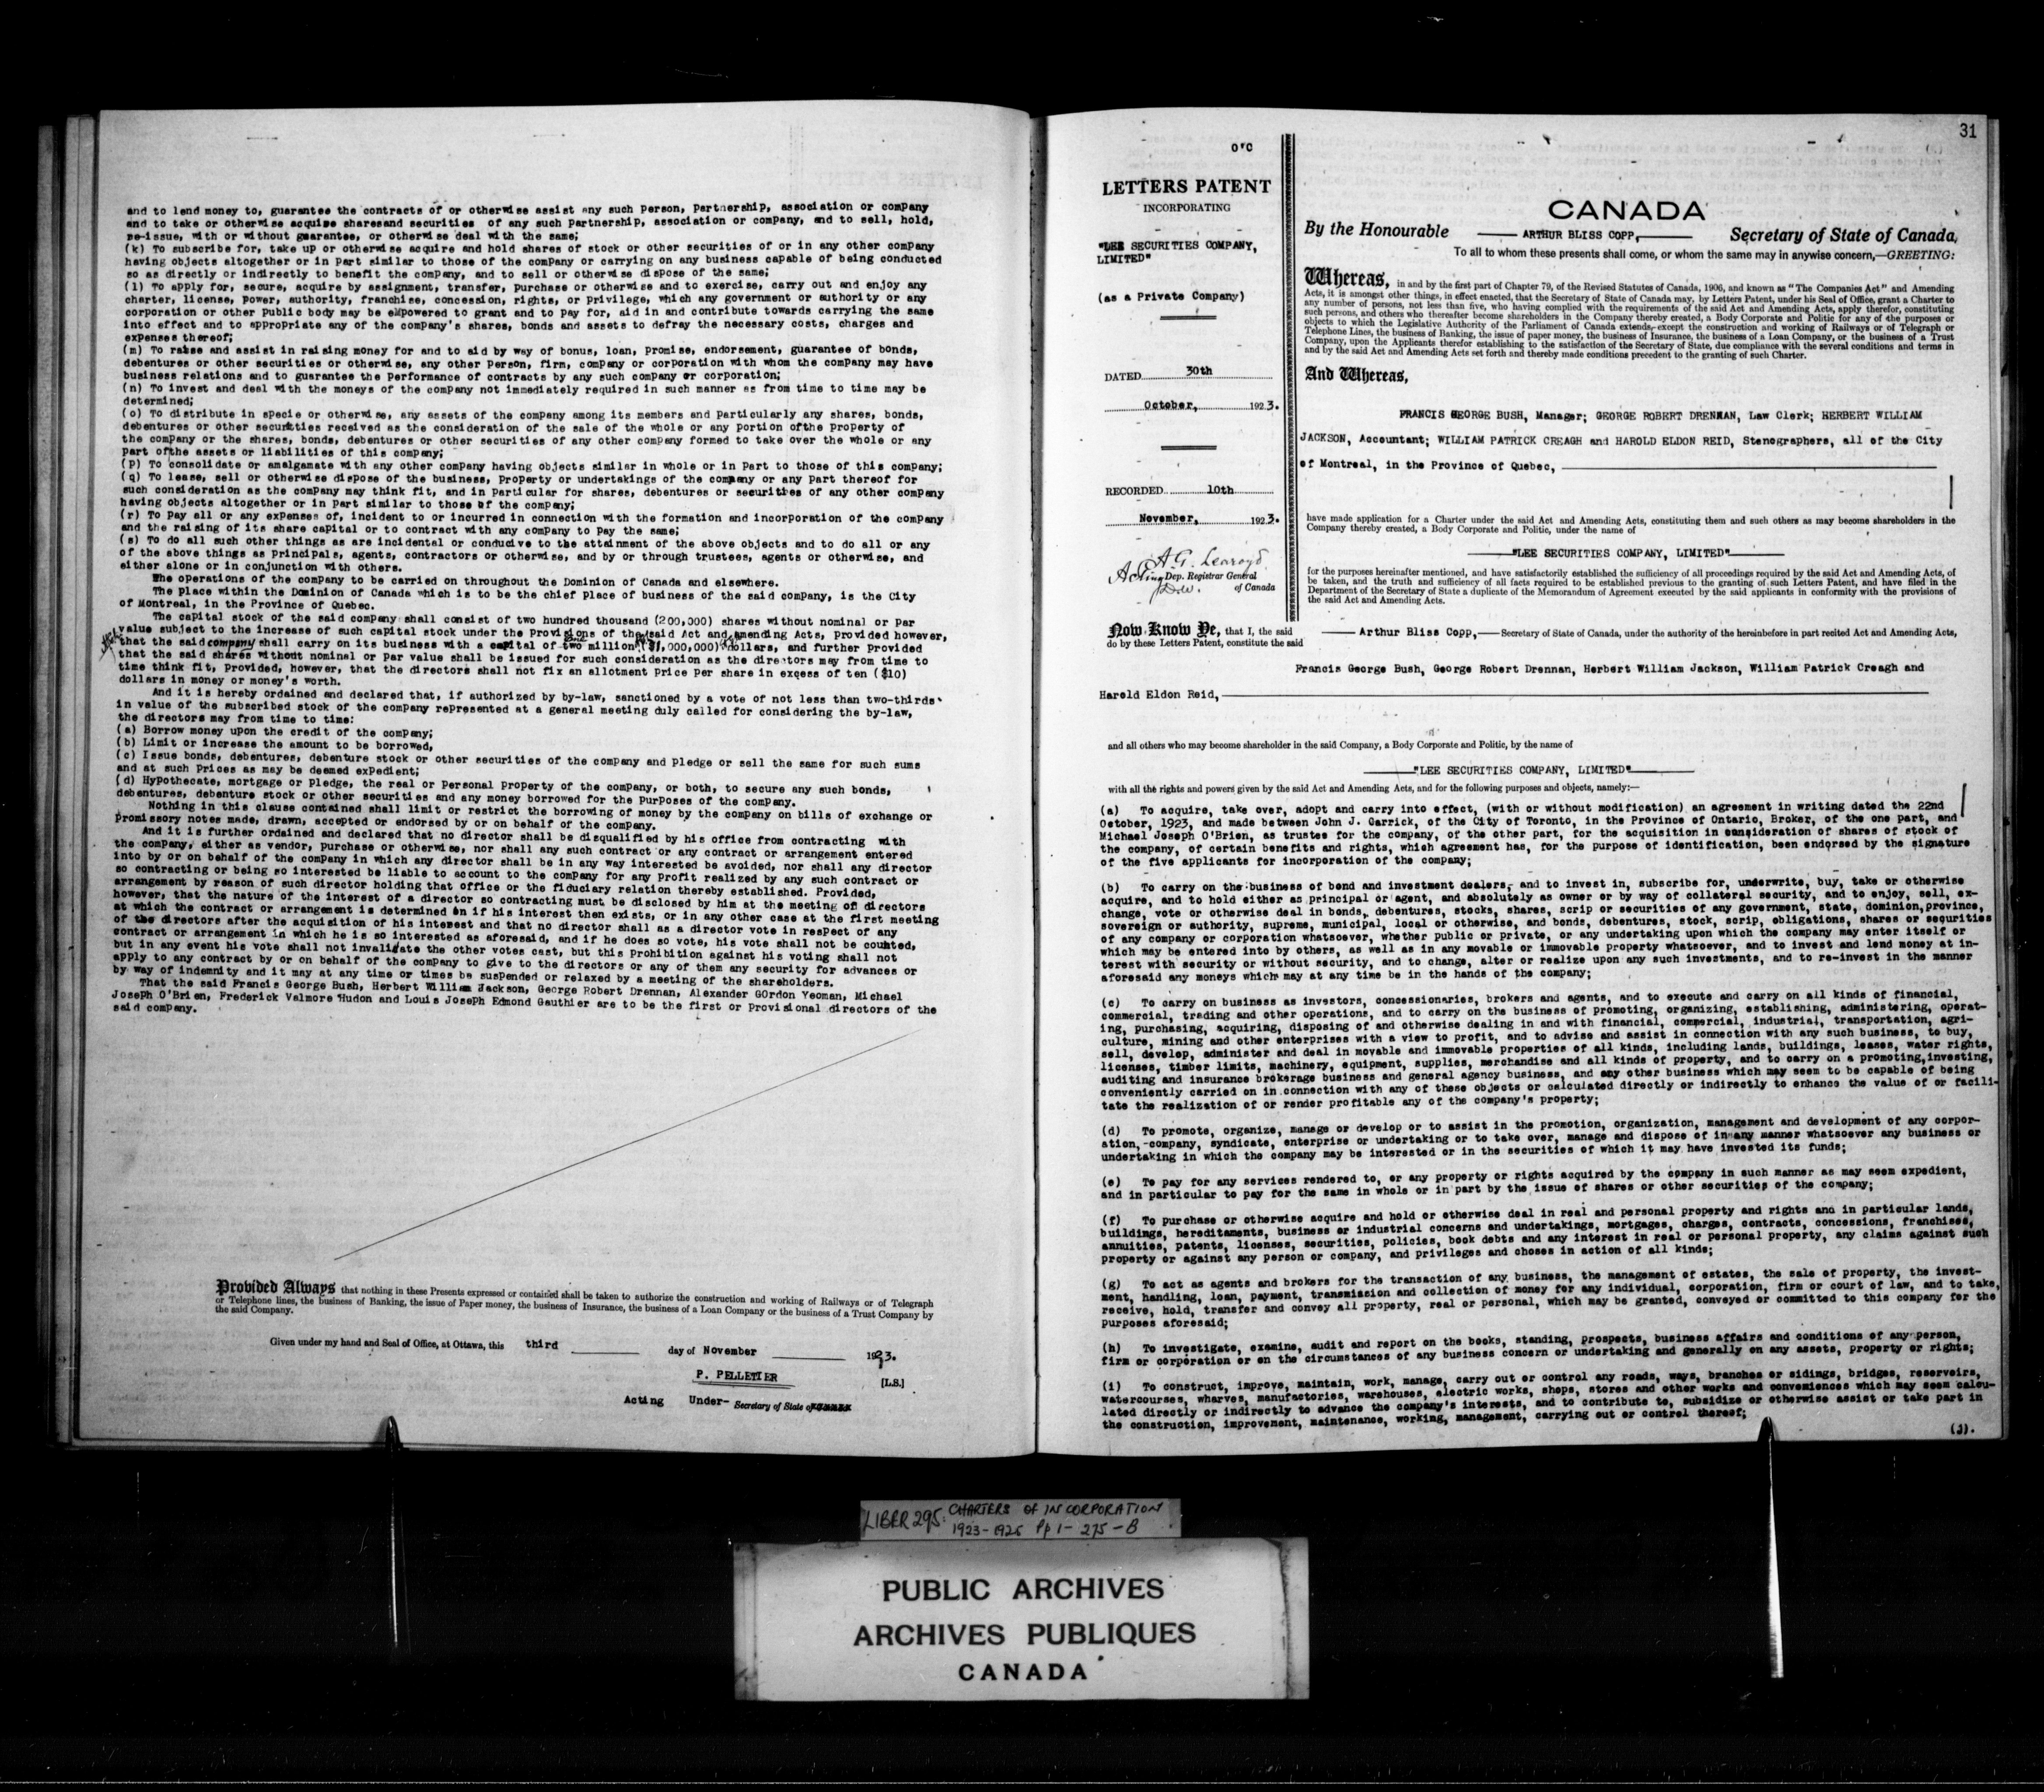 and to lend money to, guarantee the contracts of or otherwise assist any such person, partnership, association or company
and to take or otherwise acquire sharesand securities of any such partnership, association or company, and to sell, hold,
re-issue, with or without guarantee, or otherwise deal with the same;
(k) To subscribe for, take up or otherwise acquire and hold shares of stock or other securities of or in any other company
having objects altogether or in part similar to those of the company or carrying on any business capable of being conducted
so as directly or indirectly to benefit the company, and to sell or otherwise dispose of the same;
(l) To apply for, secure, acquire by assignment, transfer, purchase or otherwise and to exercise, carry out and enjoy any
charter, license, power, authority, franchise, concession, rights, or privilege, which any government or authority or any
corporation or other public body may be empowered to grant and to pay for, aid in and contribute towards carrying the same
into effect and to appropriate any of the company's shares, bonds and assets to defray the necessary costs, charges and
expenses thereof;
(m) To raise and assist in raising money for and to aid by way of bonus, loan, promise, endorsement, guarantee of bonds,
debentures or other securities or otherwise, any other person, firm, company or corporation with whom the company may have
business relations and to guarantee the performance of contracts by any such company or corporation;
(n) To invest and deal with the moneys of the company not immediately required in such manner as from time to time may be
determined;
(o) To distribute in specie or otherwise, any assets of the company among its members and particularly any shares, bonds,
debentures or other securities received as the consideration of the sale of the whole or any portion ofthe property of
the company or the shares, bonds, debentures or other securities of any other company formed to take over the whole or any
part ofthe assets or liabilities of this company;
(p) To consolidate or amalgamate with any other company having objects similar in whole or in part to those of this company;
(q) To lease, sell or otherwise dispose of the business, property or undertakings of the company or any part thereof for
such consideration as the company may think fit, and in particular for shares, debentures or securities of any other company
having objects altogether or in part similar to those of the company;
(r) To pay all or any expenses of, incident to or incurred in connection with the formation and incorporation of the company
and the raising of its share capital or to contract with any company to pay the same;
(s) To do all such other things as are incidental or conducive to the attainment of the above objects and to do all or any
of the above things as principals, agents, contractors or otherwise, and by or through trustees, agents or otherwise, and
either alone or in conjunction with others.
The operations of the company to be carried on throughout the Dominion of Canada and elsewhere.
The place within the Dominion of Canada which is to be the chief place of business of the said company, is the City
of Montreal, in the Province of Quebec.
The capital stock of the said company shall consist of two hundred thousand (200,000) shares without nominal or par
value subject to the increase of such capital stock under the provisions of the said Act and Amending Acts, provided however,
that the said company shall carry on its business with a capital of two million ($1,000,000) dollars, and further provided
that the said shares without nominal or par value shall be issued for such consideration as the directors may from time to
time think fit, provided, however, that the directors shall not fix an allotment price per share in exqess of ten ($10)
dollars in money or money's worth.
And it is hereby ordained and declared that, if authorized by by-law, sanctioned by a vote of not less than two-thirds
in value of the subscribed stock of the company represented at a general meeting duly called for considering the by-law,
the directors may from time to time:
(a) Borrow money upon the credit of the company;
(b) Limit or increase the amount to be borrowed,
(c) Issue bonds, debentures, debenture stock or other securities of the company and pledge or sell the same for such sums
and at such prices as may be deemed expedient;
(d) Hypothecate, mortgage or pledge, the real or personal property of the company, or both, to secure any such bonds,
debentures, debenture stock or other securities and any money borrowed for the purposes of the company.
Nothing in this clause contained shall limit or restrict the borrowing of money by the company on bills of exchange or
promissory notes made, drawn, accepted or endorsed by or on behalf of the company.
And it is further ordained and declared that no director shall be disqualified by his office from contracting with
the company, either as vendor, purchase or otherwise, nor shall any such contract or any contract or arrangement entered
into by or on behalf of the company in which any director shall be in any way interested be avoided, nor shall any director
so contracting or being so interested be liable to account to the company for any profit realized by any such contract or
arrangement by reason of such director holding that office or the fiduciary relation thereby established. Provided,
however, that the nature of the interest of a director so contracting must be disclosed by him at the meeting of directors
at which the contract or arrangement is determined on if his interest then exists, or in any other case at the first meeting
of the directors after the acquisition of his interest and that no director shall as a director vote in respect of any
contract or arrangement in which he is so interested as aforesaid, and if he does so vote, his vote shall not be counted,
but in any event his vote shall not invalidate the other votes cast, but this prohibition against his voting shall not
apply to any contract by or on behalf of the company to give to the directors or any of them any security for advances or
by way of indemnity and it may at any time or times be suspended or relaxed by a meeting of the shareholders.
That the said Francis George Bush, Herbert William Jackson, George Robert Drennan, Alexander GOrdon Yeoman, Michael
Joseph O'Brien, Frederick Valmore Hudon and Louis Joseph Edmond Gauthier are to be the first or provisional directors of the
said company.
Provided Always that nothing in these Presents expressed or contained shall be taken to authorize the construction and working of Railways or of Telegraph
or Telephone lines, the business of Banking, the issue of Paper money, the business of Insurance, the business of a Loan Company or the business of a Trust Company by
the said Company.
Given under my hand and Seal of Office, at Ottawa, this third day of November 1923.
P. PELLETIER
[L.S.]
Acting Under- Secretary of State
31
O'C
LETTERS PATENT
INCORPORATING
"LEE SECURITIES COMPANY,
LIMITED"
(as a Private Company)
DATED 30th
October, 1923.
RECORDED 10th
November, 1923.
A. G. Learoyd
Acting Dep. Registrar General
of Canada
CANADA
By the Honourable ARTHUR BLISS COPP, Secretary of State of Canada,
To all to whom these presents shall come, or whom the same may in anywise concern,—GREETING:
Whereas, in and by the first part of Chapter 79, of the Revised Statutes of Canada, 1906, and known as "The Companies Act" and Amending
Acts, it is amongst other things, in effect enacted, that the Secretary of State of Canada may, by Letters Patent, under his Seal of Office, grant a Charter to
any number of persons, not less than five, who having complied with the requirements of the said Act and Amending Acts, apply therefor, constituting
such persons, and others who thereafter become shareholders in the Company thereby created, a Body Corporate and Politic for any of the purposes or
objects to which the Legislative Authority of the Parliament of Canada extends, except the construction and working of Railways or of Telegraph or
Telephone Lines, the business of Banking, the issue of paper money, the business of Insurance, the business of a Loan Company, or the business of a Trust
Company, upon the Applicants therefor establishing to the satisfaction of the Secretary of State, due compliance with the several conditions and terms in
and by the said Act and Amending Acts set forth and thereby made conditions precedent to the granting of such Charter.
And Whereas,
FRANCIS GEORGE BUSH, Manager; GEORGE ROBERT DRENNAN, Law Clerk; HERBERT WILLIAM
JACKSON, Accountant; WILLIAM PATRICK CREAGH and HAROLD ELDON REID, Stenographers, all of the City
of Montreal, in the Province of Quebec,
have made application for a Charter under the said Act and Amending Acts, constituting them and such others as may become shareholders in the
Company thereby created, a Body Corporate and Politic, under the name of
"LEE SECURITIES COMPANY, LIMITED"
for the purposes hereinafter mentioned, and have satisfactorily established the sufficiency of all proceedings required by the said Act and Amending Acts, of
be taken, and the truth and sufficiency of all facts required to be established previous to the granting of such Letters Patent, and have filed in the
Department of the Secretary of State a duplicate of the Memorandum of Agreement executed by the said applicants in conformity with the provisions of
the said Act and Amending Acts.
Now Know Ye, that I, the said Arthur Bliss Copp, Secretary of State of Canada, under the authority of the hereinbefore in part recited Act and Amending Acts,
do by these Letters Patent, constitute the said
Francis George Bush, George Robert Drennan, Herbert William Jackson, William Patrick Creagh and
Harold Eldon Reid,
and all others who may become shareholder in the said Company, a Body Corporate and Politic, by the name of
"LEE SECURITIES COMPANY, LIMITED"
with all the rights and powers given by the said Act and Amending Acts, and for the following purposes and objects, namely:—
(a) To acquire, take over, adopt and carry into effect, (with or without modification) an agreement in writing dated the 22nd
October, 1923, and made between John J. Garrick, of the City of Toronto, in the Province of Ontario, Broker, of the one part, and
Michael Joseph O'Brien, as trustee for the company, of the other part, for the acquisition in consideration of shares of stock of
the company, of certain benefits and rights, which agreement has, for the purpose of identification, been endorsed by the signature
of the five applicants for incorporation of the company;
(b) To carry on the business of bond and investment dealers, and to invest in, subscribe for, underwrite, buy, take or otherwise
acquire, and to hold either as principal or agent, and absolutely as owner or by way of collateral security, and to enjoy, sell, ex-
change, vote or otherwise deal in bonds, debentures, stocks, shares, scrip or securities of any government, state, dominion, province,
sovereign or authority, supreme, municipal, local or otherwise, and bonds, debentures, stock, scrip, obligations, shares or securities
of any company or corporation whatsoever, whether public or private, or any undertaking upon which the company may enter itself or
which may be entered into by others, as well as in any movable or immovable property whatsoever, and to invest and lend money at in-
terest with security or without security, and to change, alter or realize upon any such investments, and to re-invest in the manner
aforesaid any moneys which may at any time be in the hands of the company;
(c) To carry on business as investors, concessionaries, brokers and agents, and to execute and carry on all kinds of financial,
commercial, trading and other operations, and to carry on the business of promoting, organizing, establishing, administering, operat-
ing, purchasing, acquiring, disposing of and otherwise dealing in and with financial, commercial, industrial, transportation, agri-
culture, mining and other enterprises with a view to profit, and to advise and assist in connection with any such business, to buy,
sell, develop, administer and deal in movable and immovable properties of all kinds, including lands, buildings, leases, water rights,
licenses, timber limits, machinery, equipment, supplies, merchandise and all kinds of property, and to carry on a promoting, investing,
auditing and insurance brokerage business and general agency business, and any other business which may seem to be capable of being
conveniently carried on in connection with any of these objects or calculated directly or indirectly to enhance the value of or facili-
tate the realization of or render profitable any of the company's property;
(d) To promote, organize, manage or develop or to assist in the promotion, organization, management and development of any corpor-
ation, company, syndicate, enterprise or undertaking or to take over, manage and dispose of in any manner whatsoever any business or
undertaking in which the company may be interested or in the securities of which it may have invested its funds;
(e) To pay for any services rendered to, or any property or rights acquired by the company in such manner as may seem expedient,
and in particular to pay for the same in whole or in part by the issue of shares or other securities of the company;
(f) To purchase or otherwise acquire and hold or otherwise deal in real and personal property and rights and in particular lands,
buildings, hereditaments, business or industrial concerns and undertakings, mortgages, charges, contracts, concessions, franchises,
annuities, patents, licenses, securities, policies, book debts and any interest in real or personal property, any claims against such
property or against any person or company, and privileges and choses in action of all kinds;
(g) To act as agents and brokers for the transaction of any business, the management of estates, the sale of property, the invest-
ment, handling, loan, payment, transmission and collection of money for any individual, corporation, firm or court of law, and to take,
receive, hold, transfer and convey all property, real or personal, which may be granted, conveyed or committed to this company for the
purposes aforesaid;
(h) To investigate, examine, audit and report on the books, standing, prospects, business affairs and conditions of any person,
firm or corporation or on the circumstances of any business concern or undertaking and generally on any assets, property or rights;
(i) To construct, improve, maintain, work, manage, carry out or control any roads, ways, branches or sidings, bridges, reservoirs,
watercourses, wharves, manufactories, warehouses, electric works, shops, stores and other works and conveniences which may seem calcu-
lated directly or indirectly to advance the company's interests, and to contribute to, subsidize or otherwise assist or take part in
the construction, improvement, maintenance, working, management, carrying out or control thereof;
(j).
LIBER 295: CHARTERS OF INCORPORATION
1923-1925 Pp 1-275-B
PUBLIC ARCHIVES
ARCHIVES PUBLIQUES
CANADA